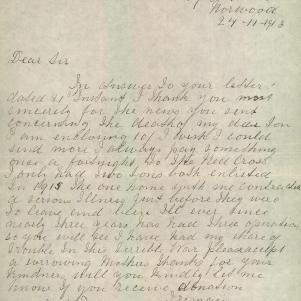 Norwood
24-11-1918
Dear Sir
In answer to your letter
dated 21st Instant I thank you most
sincerely for the news you send
concerning the death of my dear son
I am enclosing 10/ I wish I could
send more I always pay something
once a fortnight to the Red Cross
I only had two sons both enlisted
in 1915 The one home with me contracted
a serious illness just before they were
to leave and been ill ever since
nearly three years has had three operations
so you will see I have had my share of
trouble in the terrible War please accept
a sorrowing Mothers thanks for your
kindness will you kindly let me
know if you receive donation